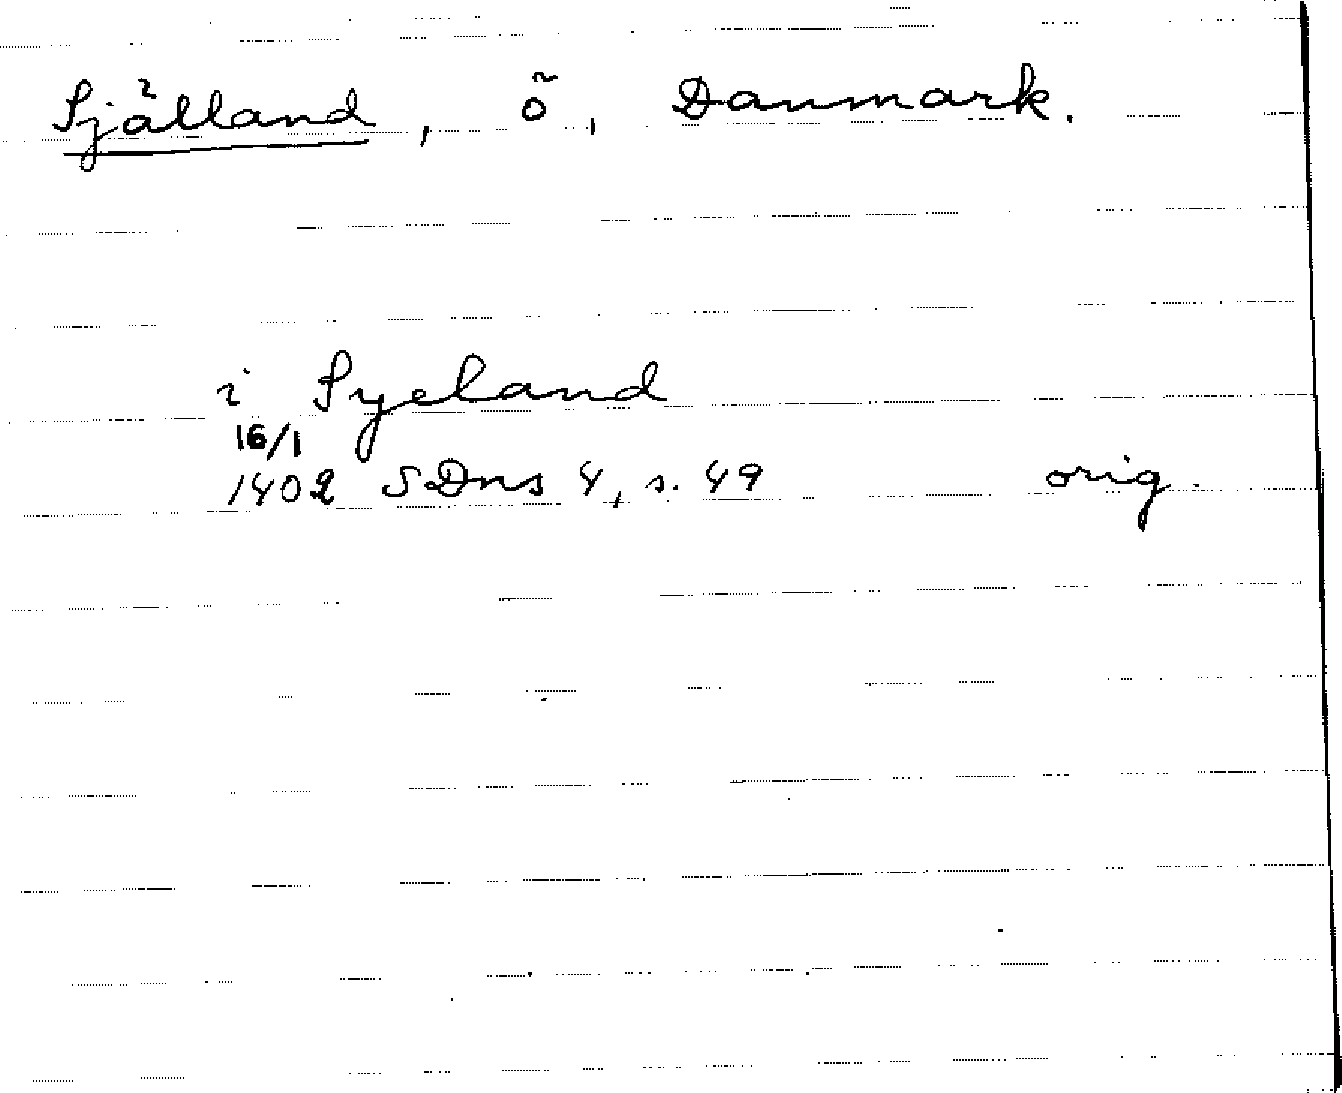 Själland, ö, Danmark.
i Syeland
16/1
1402 SDns 4, s. 49 orig.